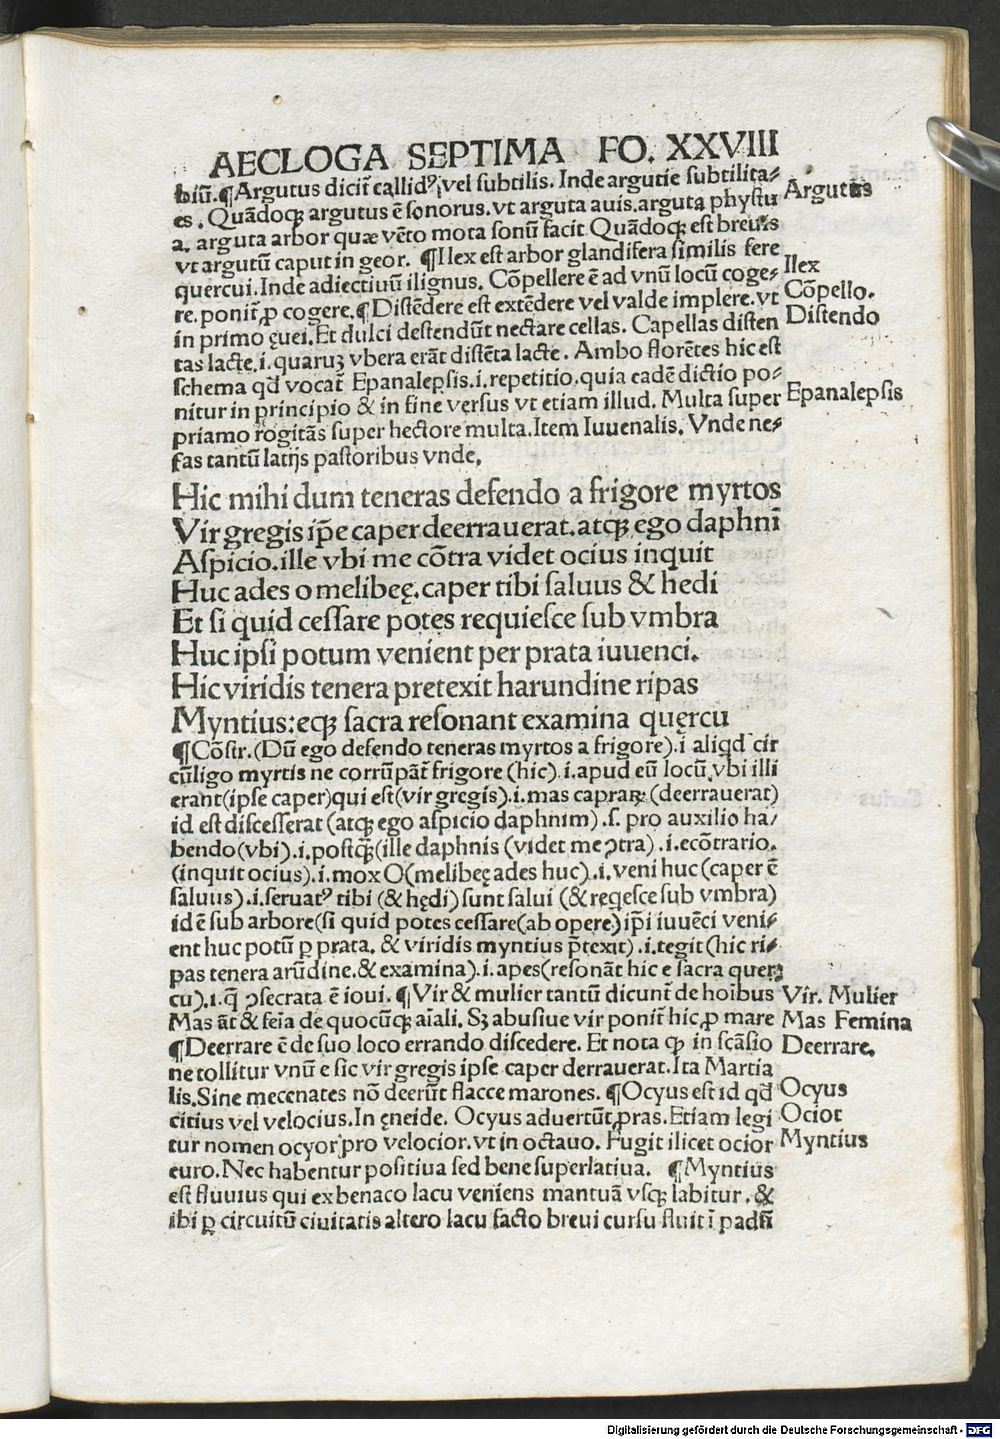 AECLOGA SEPTIMA FO. XXVIII
biū.¶Argutus dicit̄ callidꝰ,vel subtilis. Inde argutie subtilita⸗
es. Quādoqꝫ argutus ē sonorus.vt arguta auis.arguta phystu
a. arguta arbor quæ vēto mota sonū facit Quādoqꝫ est breuis
vt argutū caput in geor. ¶Ilex est arbor glandifera similis fere
quercui.Inde adiectiuū ilignus. Cōpellere ē ad vnū locū coge⸗
re.ponit̄ ꝓ cogere.¶Distēdere est extēdere vel valde implere.vt
in primo ęnei.Et dulci destendūt nectare cellas. Capellas disten
tas lacte.i.quaruꝫ vbera erāt distēta lacte. Ambo florētes hic est
schema qđ vocat̄ Epanalepsis.i.repetitio.quia eadē dictio po⸗
nitur in principio & in fine versus vt etiam illud. Multa super
priamo rogitās super hectore multa.Item Iuuenalis. Vnde ne⸗
fas tantū latijs pastoribus vnde.
Argutus
Ilex
Cōpello.
Distendo
Epanalepsis
Hic mihi dum teneras defendo a frigore myrtos
Vir gregis ip̄e caper deerrauerat.atqꝫ ego daphnī
Aspicio.ille vbi me cōtra videt ocius inquit
Huc ades o melibeę.caper tibi saluus & hedi
Et si quid cessare potes requiesce sub vmbra
Huc ipsi potum venient per prata iuuenci.
Hic viridis tenera pretexit harundine ripas
Myntius:eqꝫ sacra resonant examina quęrcu
¶Cōstr.(Dū ego defendo teneras myrtos a frigore).i aliqđ cir
cūligo myrtis ne corrūpāt̄ frigore (hic).i.apud eū locū,vbi illi
erant(ipse caper)qui est(vir gregis).i.mas capraꝝ (deerrauerat)
id est discesserat (atqꝫ ego aspicio daphnim).s. pro auxilio ha/
bendo(vbi).i.postqꝫ̄(ille daphnis (videt me ꝯtra).i.ecōtrario.
(inquit ocius).i.mox O(melibeę ades huc).i.veni huc(caper ē
saluus).i.seruatꝰ tibi (& hędi) sunt salui (& reqesce sub vmbra)
id ē sub arbore(si quid potes cessare(ab opere) ip̄i iuuēci veni⸗
ent huc potū ꝑ prata. & viridis myntius p̄texit).i.tegit(hic ri⸗
pas tenera arūdine.& examina).i.apes(resonāt hic e sacra quer⸗
cu).i.q̄ ꝯsecrata ē ioui.¶Vir & mulier tantū dicunt̄ de hoībus
Mas āt & feīa de quocūqꝫ aīali. Sꝫ abusiue vir ponit̄ hic ꝓ mare
¶Deerrare ē de suo loco errando discedere. Et nota ꝙ in scāsio
ne tollitur vnū e sic vir gregis ipse caper derrauerat.Ita Martia
lis.Sine mecenates nō deerūt flacce marones. ¶Ocyus est id qđ
citius vel velocius.In ęneide. Ocyus aduertūt ꝓras.Etiam legi
tur nomen ocyor pro velocior.vt in octauo. Fugit ilicet ocior
euro.Nec habentur positiua sed bene superlatiua. ¶Myntius
est fluuius qui ex benaco lacu veniens mantuā vsqꝫ labitur. &
ibi ꝑ circuitū ciuitatis altero lacu facto breui cursu fluit ī padū
Vir. Mulier
Mas Femina
Deerrare.
Ocyus
Ocior
Myntius
Digitalisierung gefördert durch die Deutsche Forschungsgemeinschaft - DFG